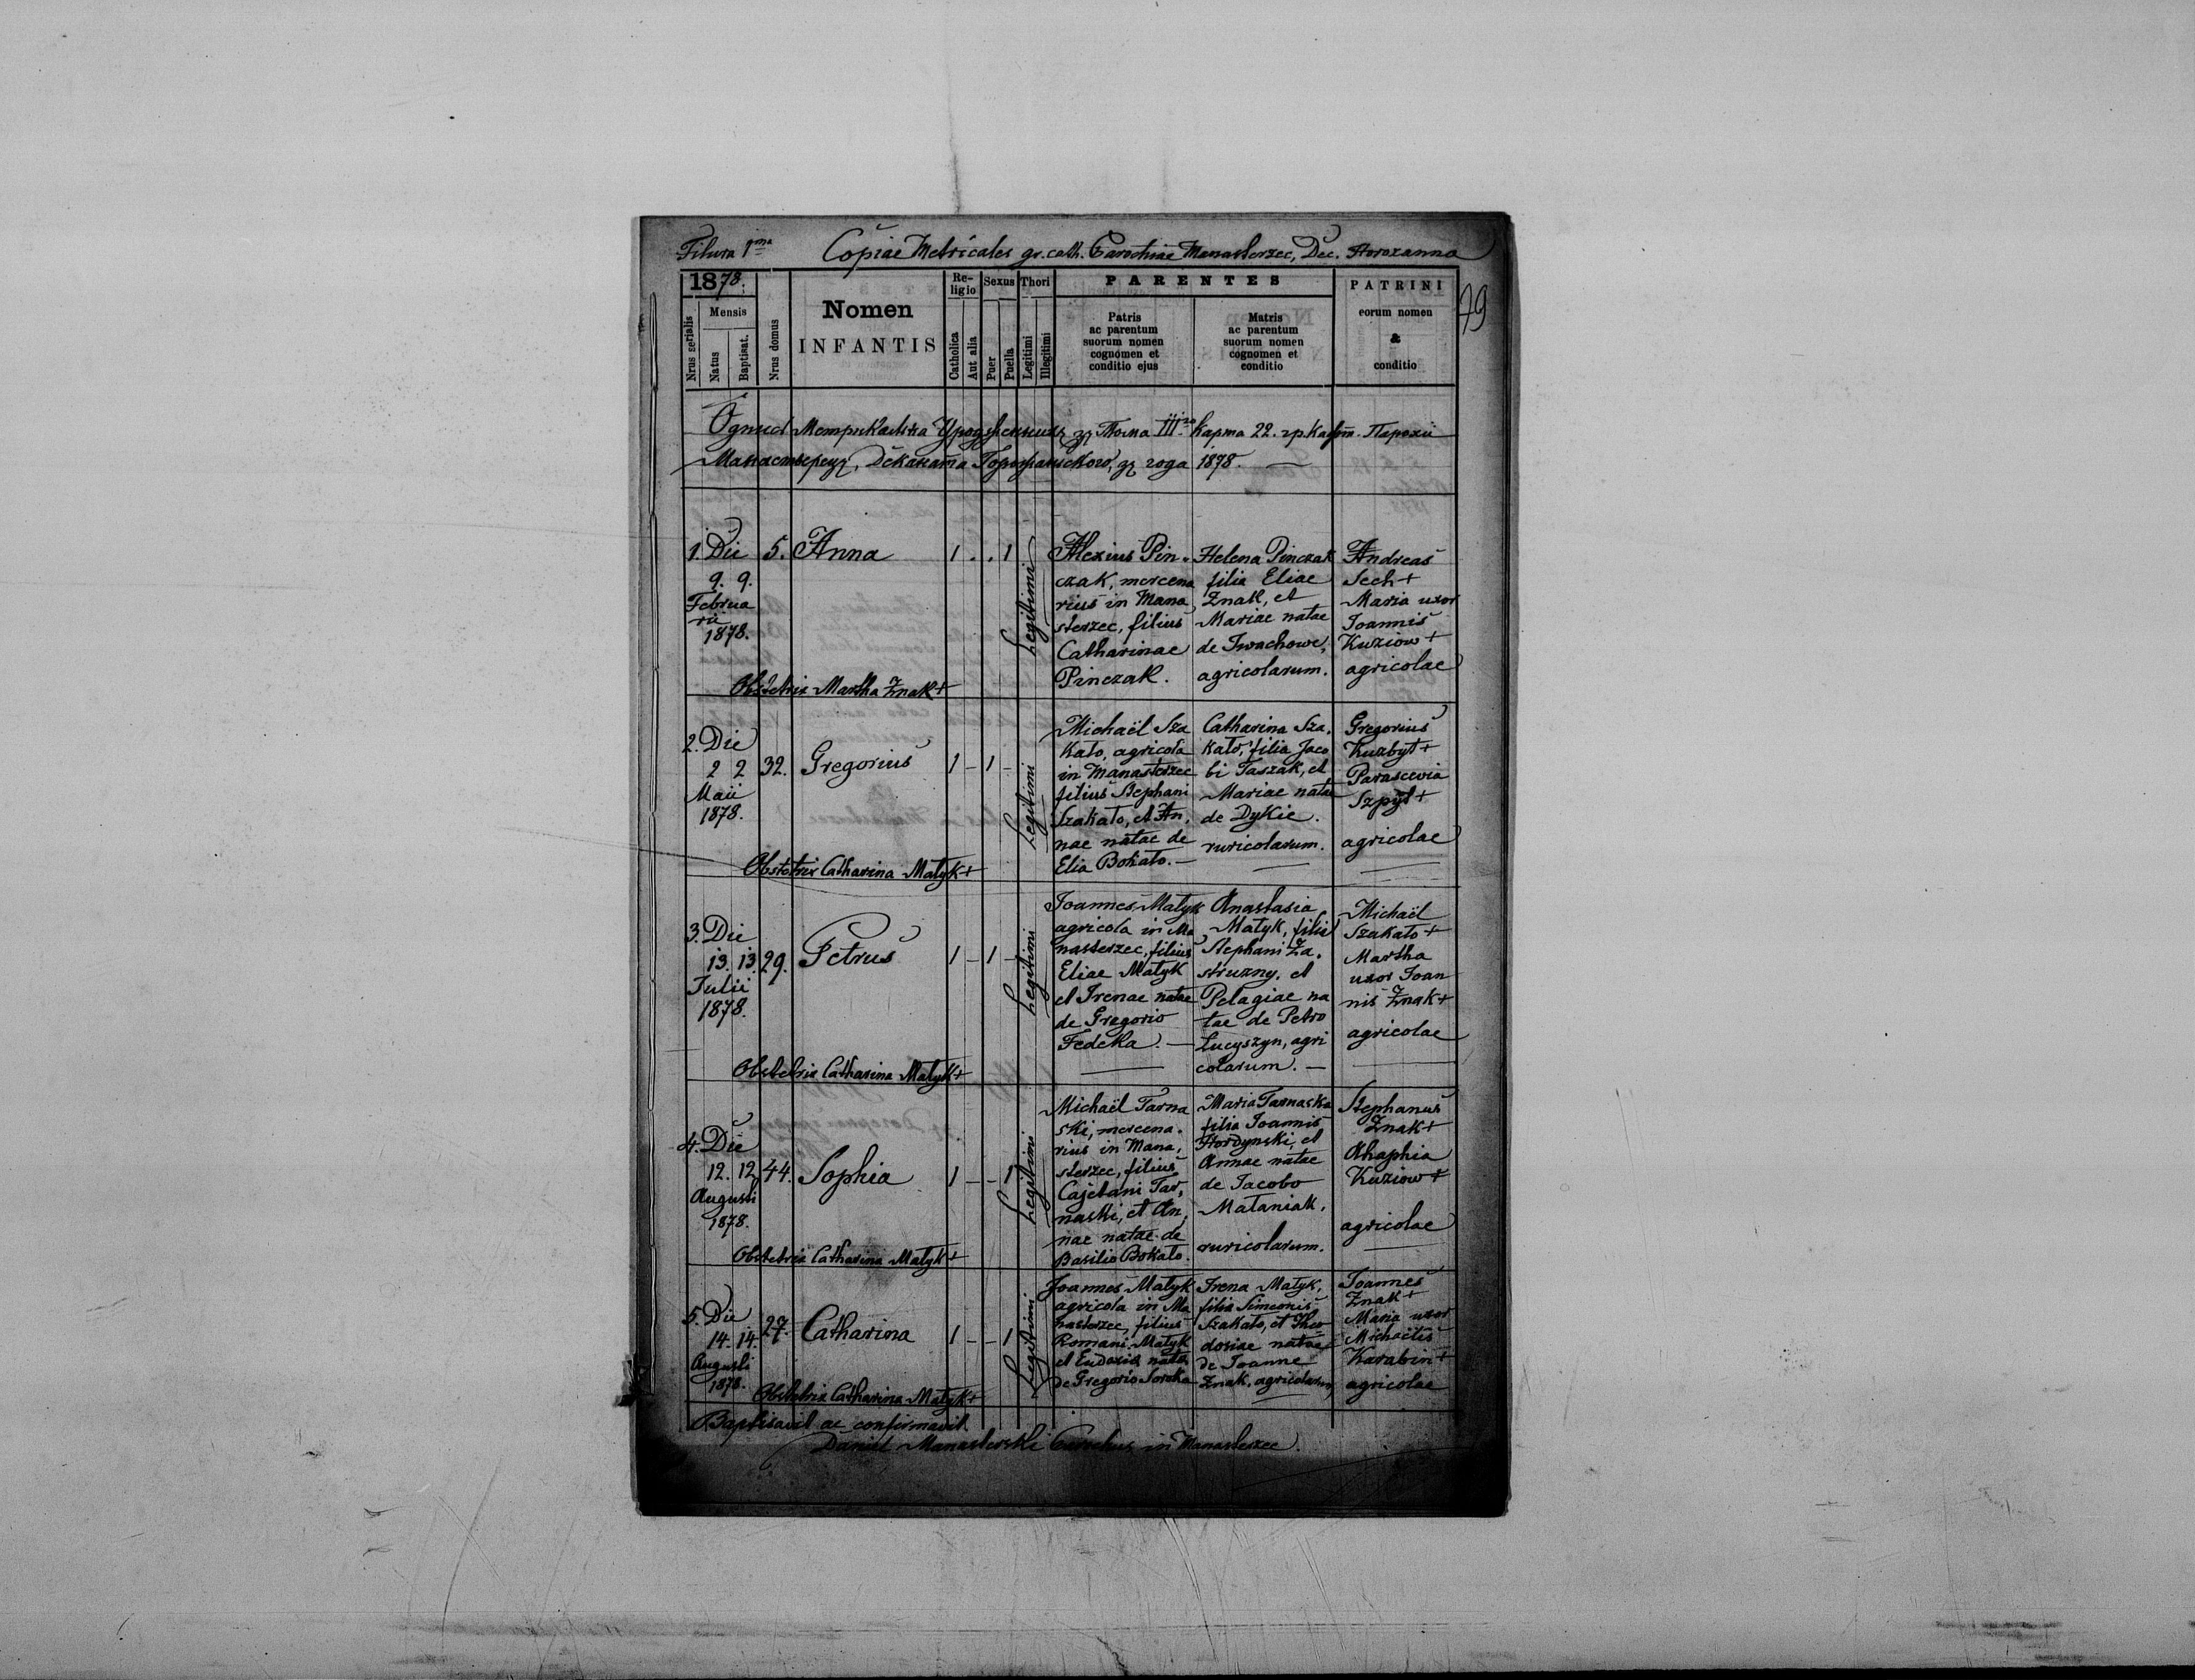 Filura 1ma Copiae Metricales gr. cath. Parochiae Manasterzec, Dec. Horozanna
79
1878.
Nrus serialis
Mensis
Natus
Baptisat.
Nrus domus
Nomen
INFANTIS
Re-
ligio
Catholica
Aut alia
Sexus
Puer
Puella
Thori
Legitimi
Illegitimi
PARENTES
Patris
ac parentum
suorum nomen
cognomen et
conditio ejus
Matris
ac parentum
suorum nomen
cognomen et
conditio
PATRINI
eorum nomen
&
conditio
Метрикальна зъ Тома III карта 22. гр. Каѳол. Парохіи
Деканата зъ года 1878. —
1. Die
9. 9.
Februa
rii
1878.
5. Anna 1 . . 1
Legitimi
Alexius Pin-
czak, mercena
rius in Mana
sterzec, filius
Catharinae
Pinczak.
Helena Pinczak
filia Eliae
Znak, et
Mariae natae
de Iwachowe,
agricolarum.
Andreas
Sech +
Maria uxor
Joannis
Kuziow +
agricolae
Obstetrix Martha Znak +
2. Die
2 2
Maii
1878.
32. Gregorius 1 – 1 –
Legitimi
Michaël Sza
kato, agricola
in Manasterzec
filius Stephani
Szakato, et An,
nae natae de
Elia Bokato. —
Catharina Sza,
kato, filia Jaco
bi Taszak, et
Mariae natae
de Dykie.
ruricolarum.
Gregorius
Kuzbyt +
Parascevia
Szpyt +
agricolae
Obstetrix Catharina Matyk +
3. Die
13. 13.
Julii
1878.
29. Petrus 1 – 1 –
Legitimi
Joannes Matyk
agricola in Ma
nasterzec, filius
Eliae Matyk
et Irenae natae
de Gregorio
Fedeka. —
Anastasia
Matyk, filia
Stephani Za,
struzny, et
Pelagiae na
tae de Petro
Łucyszyn, agri
colarum. —
Michaël
Szakato +
Martha
uxor Joan
nis Znak +
agricolae
Obstetrix Catharina Matyk +
4. Die
12. 12
Augusti
1878.
44. Sophia 1 – – 1
Legitimi
Michaël Tarna
ski, mercena,
rius in Mana,
sterzec, filius
Cajetani Tar,
naski, et An,
nae natae de
Basilio Bokato.
Maria Tarnaska
filia Joannis
Hordynski, et
Annae natae
de Jacobo
Mataniak,
ruricolarum.
Stephanus
Znak +
Ahaphia
Kuziow +
agricolae
Obstetrix Catharina Matyk +
5. Die
14. 14.
Augusti
1878.
27. Catharina 1 – – 1
Legitimi
Joannes Matyk
agricola in Ma
nasterzec, filius
Romani Matyk
et Eudoxiae natae
de Gregorio Soroka
Irena Matyk,
filia Simeonis
Szakato, et Theo
dosiae natae
de Joanne
Znak, agricolarum,
Joannes
Znak +
Maria uxor
Michaëlis
Karabin +
agricolae
Obstetrix Catharina Matyk +
Baptisavit ac confirmavit
Daniel Manasterski Parochus in Manasterzec.